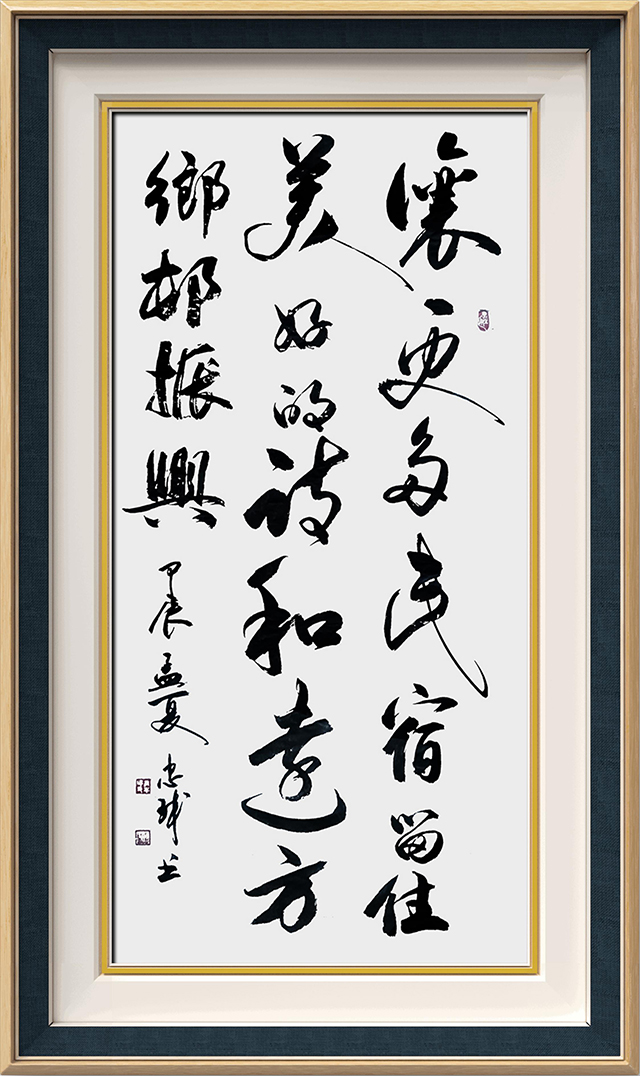 讓更多民宿留住
美好的詩和遠方
鄉邨振興
甲辰孟夏 忠 书